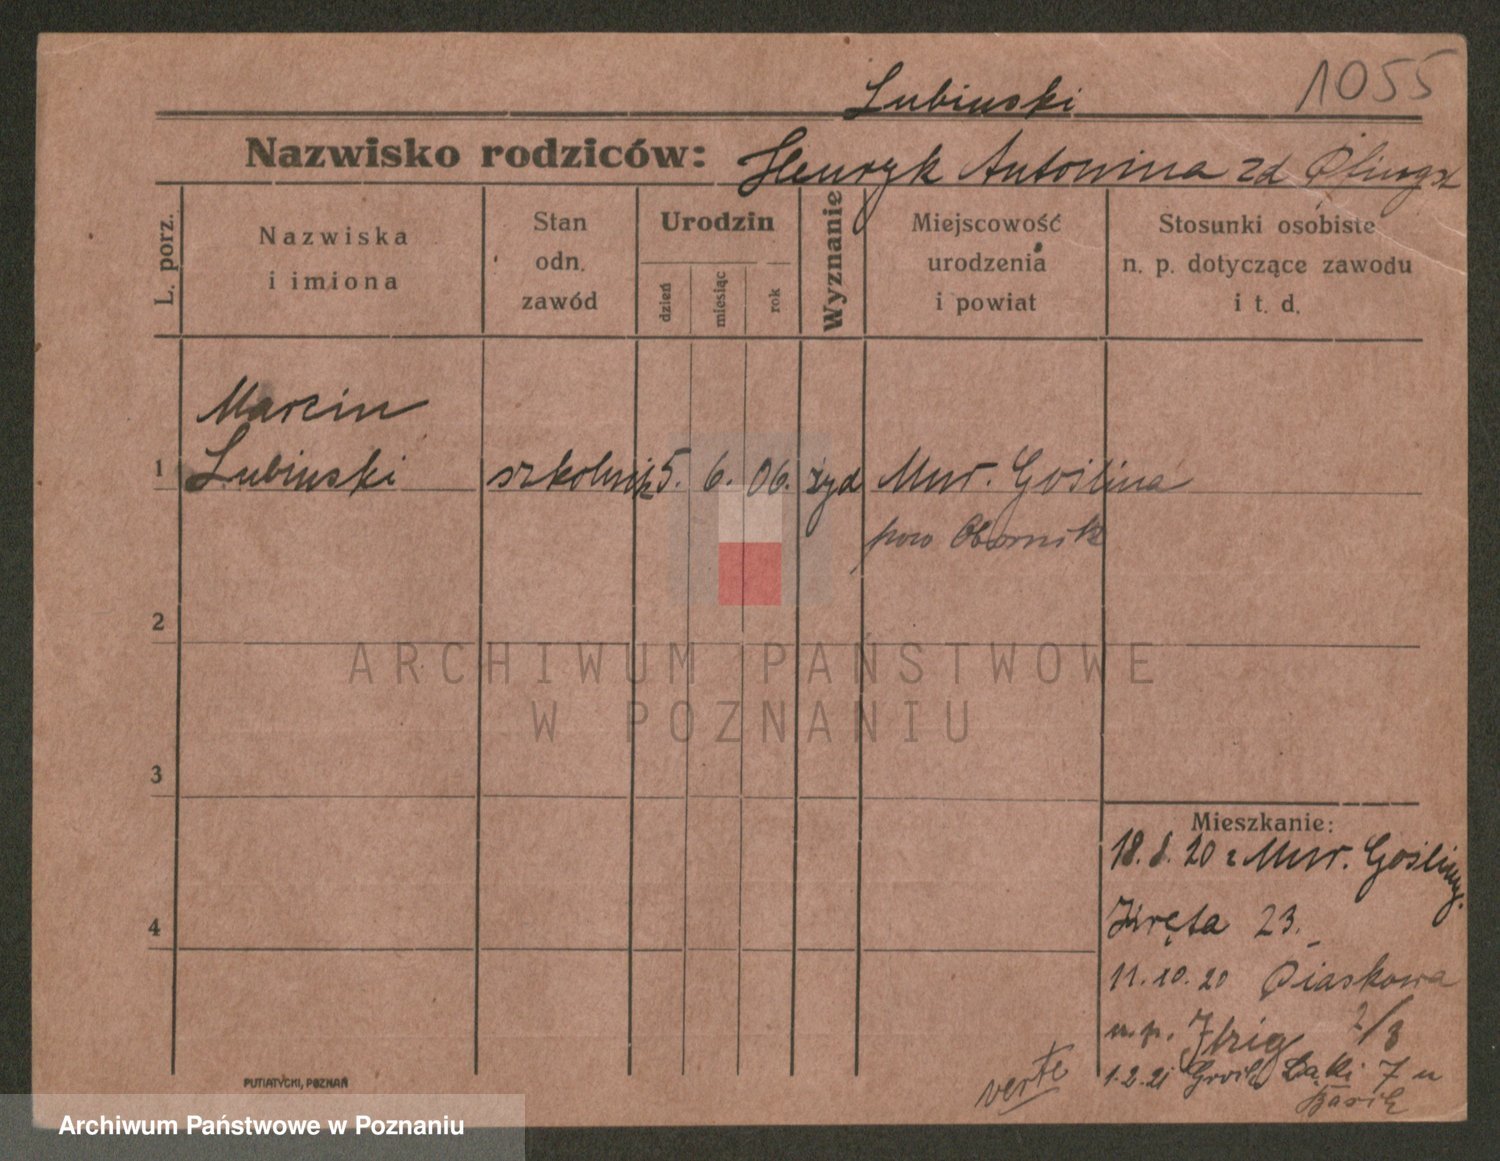 1055
Lubinski
Nazwisko rodziców: Henryk Antonina zd
L. porz.
Nazwiska
i imiona
Stan
odn.
zawód
Urodzin
dzień
miesiąc
rok
Wyznanie
Miejscowość
urodzenia
i powiat
Stosunki osobiste
n. p. dotyczące zawodu
i t. d.
Marcin
1 Lubinski szkolnik 5. 6. 06. żyd Mur. Goślina
pow Obornik
2
3
4
Mieszkanie:
18.8.20 z Mur. Gośliny.
Kręta 23.
11.10.20 Piaskowa
u.p. 2/3
1.2.21 Grobla 7 u
verte
PUTIATYCKI, POZNAŃ
ARCHIWUM PAŃSTWOWE
W POZNANIU
Archiwum Państwowe w Poznaniu